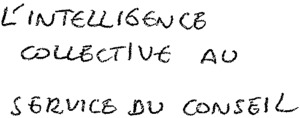 L'INTELLIGENCE
COLLECTIVE AU
SERVICE DU CONSEIL